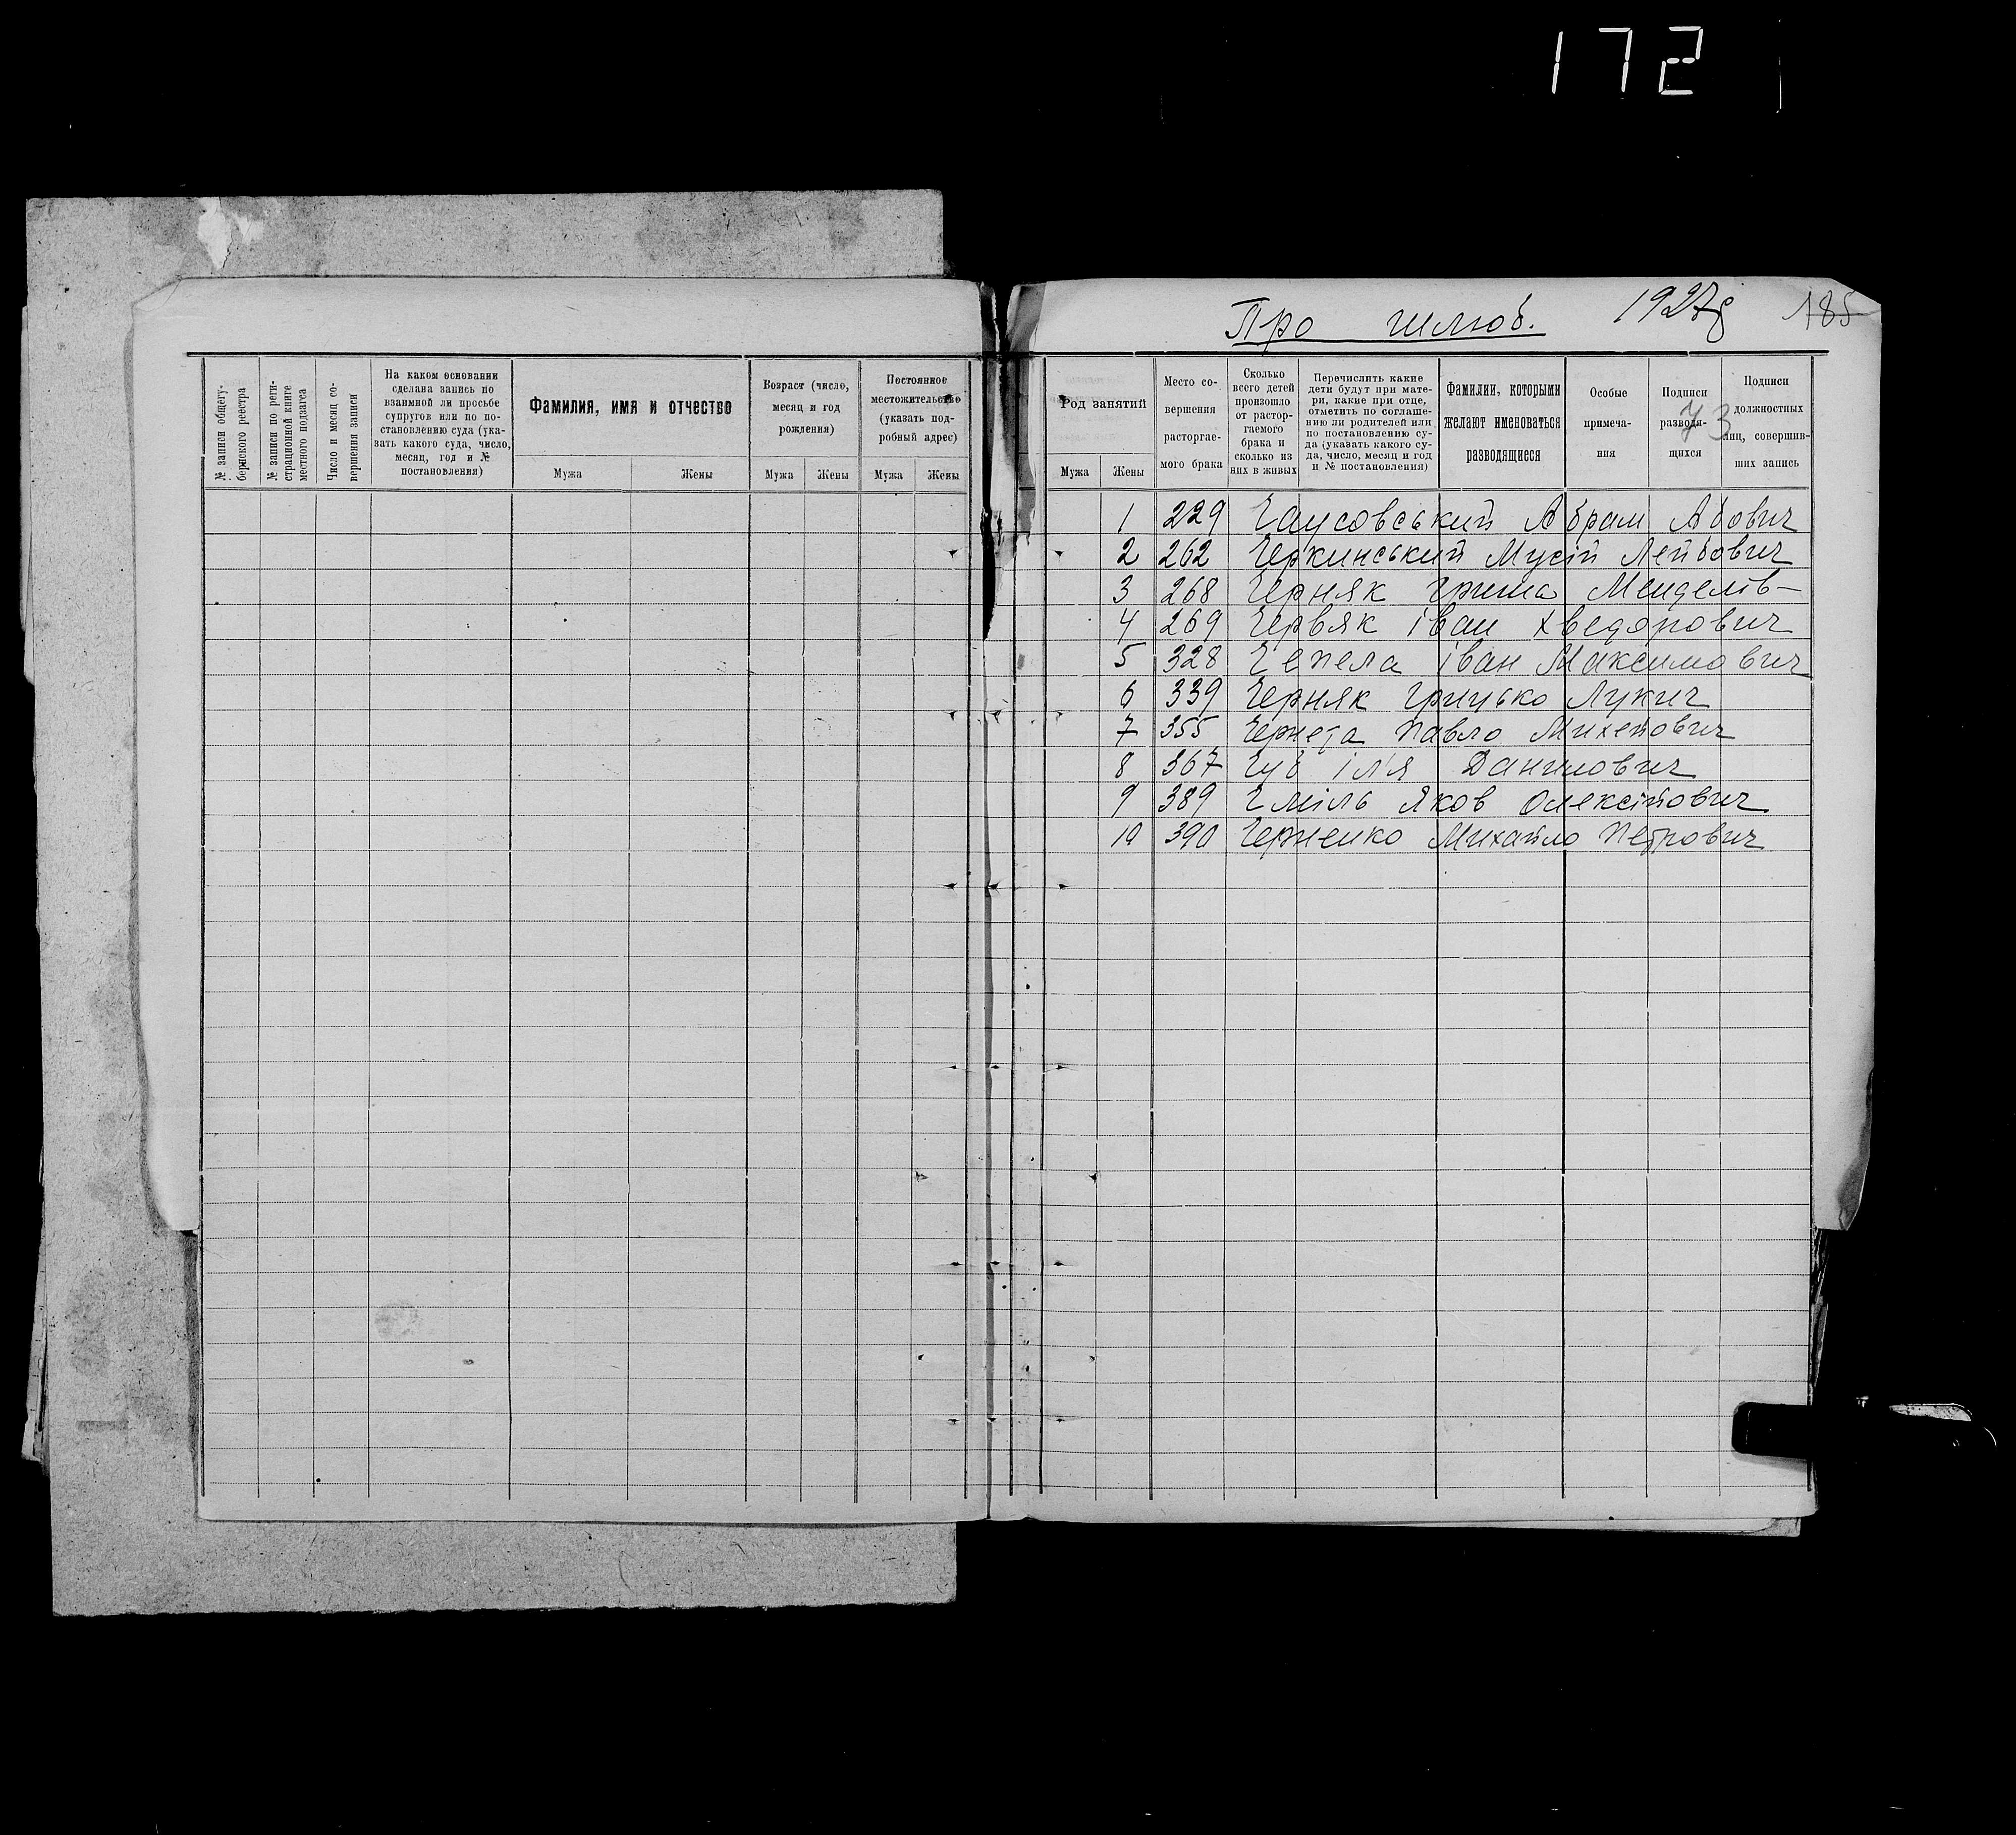 172
Про шлюб. 1927р 185
73
№ записи общегу-
бернского реестра
№ записи по реги-
страционной книге
местного подзагса
Число и месяц со-
вершения записи
На каком основании
сделана запись по
взаимной ли просьбе
супругов или по по-
становлению суда (ука-
зать какого суда, число,
месяц, год и №
постановления)
Фамилия, имя и отчество
Мужа Жены
Возраст (число,
месяц и год
рождения)
Мужа Жены
Постоянное
местожительство
(указать под-
робный адрес)
Мужа Жены
Род занятий
Мужа Жены
Место со-
вершения
расторгае-
мого брака
Сколько
всего детей
произошло
от растор-
гаемого
брака и
сколько из
них в живых
Перечислить какие
дети будут при мате-
ри, какие при отце,
отметить по соглаше-
нию ли родителей или
по постановлению су-
да (указать какого су-
да, число, месяц и год
и № постановления)
Фамилии, которыми
желают именоваться
разводящиеся
Особые
примеча-
ния
Подписи
разводя-
щихся
Подписи
должностных
лиц, совершив-
ших запись
1 229 Чаусовський Абрам Абович
2 262 Черкинський Мусій Лейбович
3 268 Черняк Гриша Менделів-
4 269 Червяк іван Хведорович
5 328 Чепела іван Максимович
6 339 Черняк Грицько Лукич
7 355 Чернета Павло Михейович
8 367 Чуб ілʼя Данилович
9 389 Чміль Яков Олексійович
10 390 Черненко Михайло Петрович